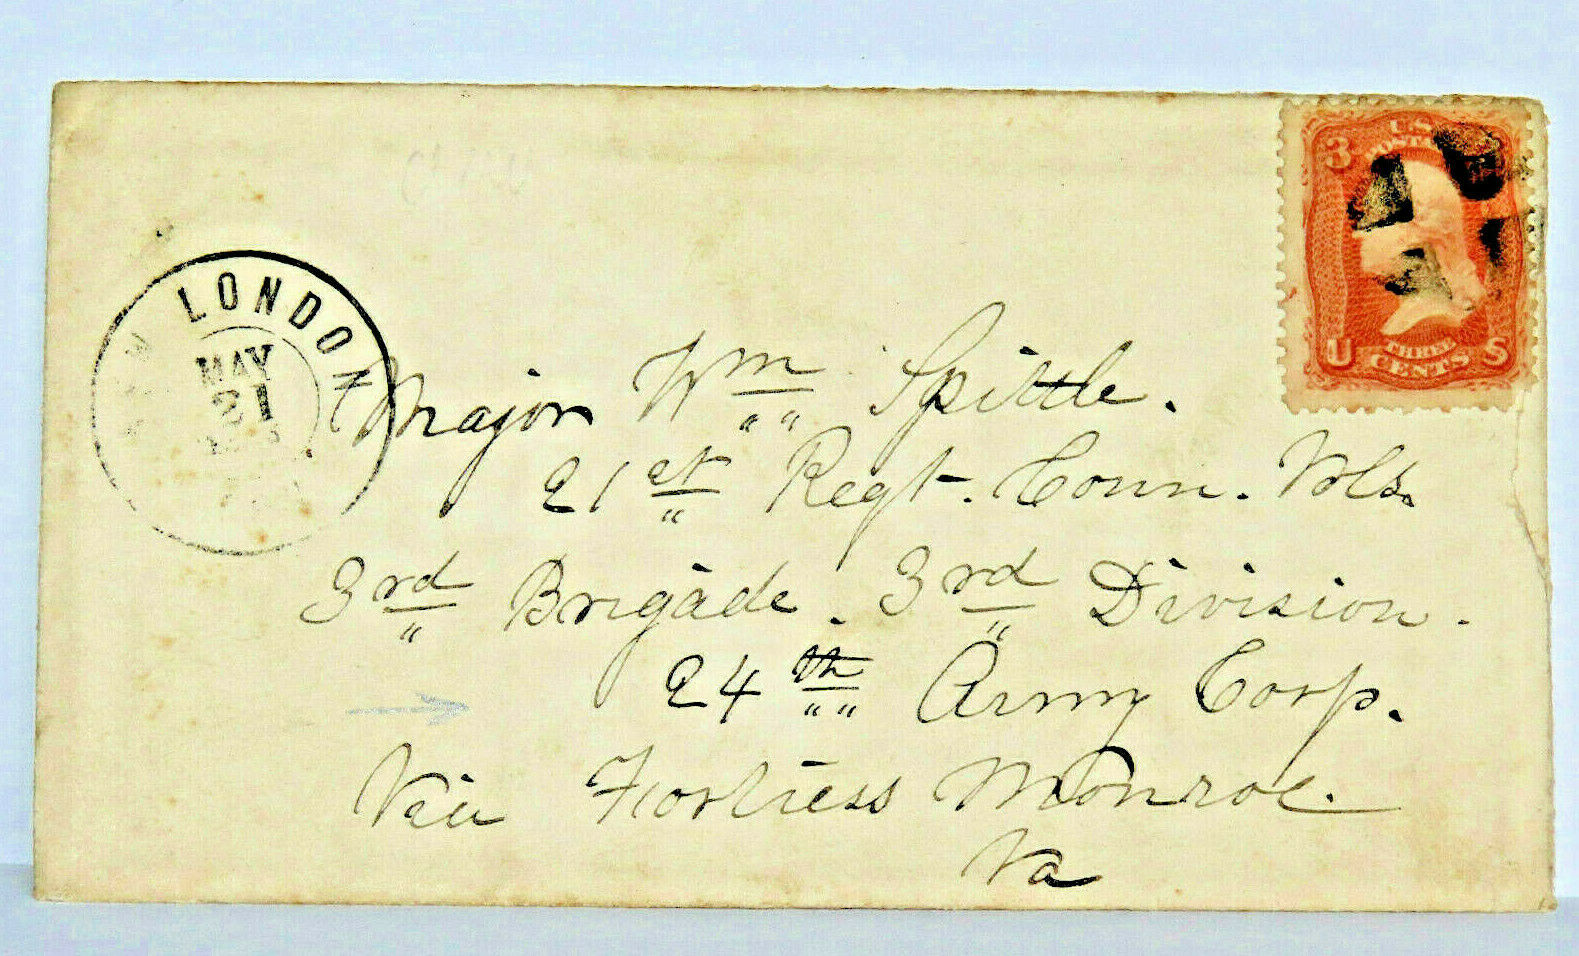 NEW LONDON
MAY
21
3 U.S. POSTAGE
U THREE CENTS S
Major Wm Spittle.
21st Regt. Conn. Vols.
3rd Brigade. 3rd Division.
24th Army Corp.
Via Fortress Monroe.
Va